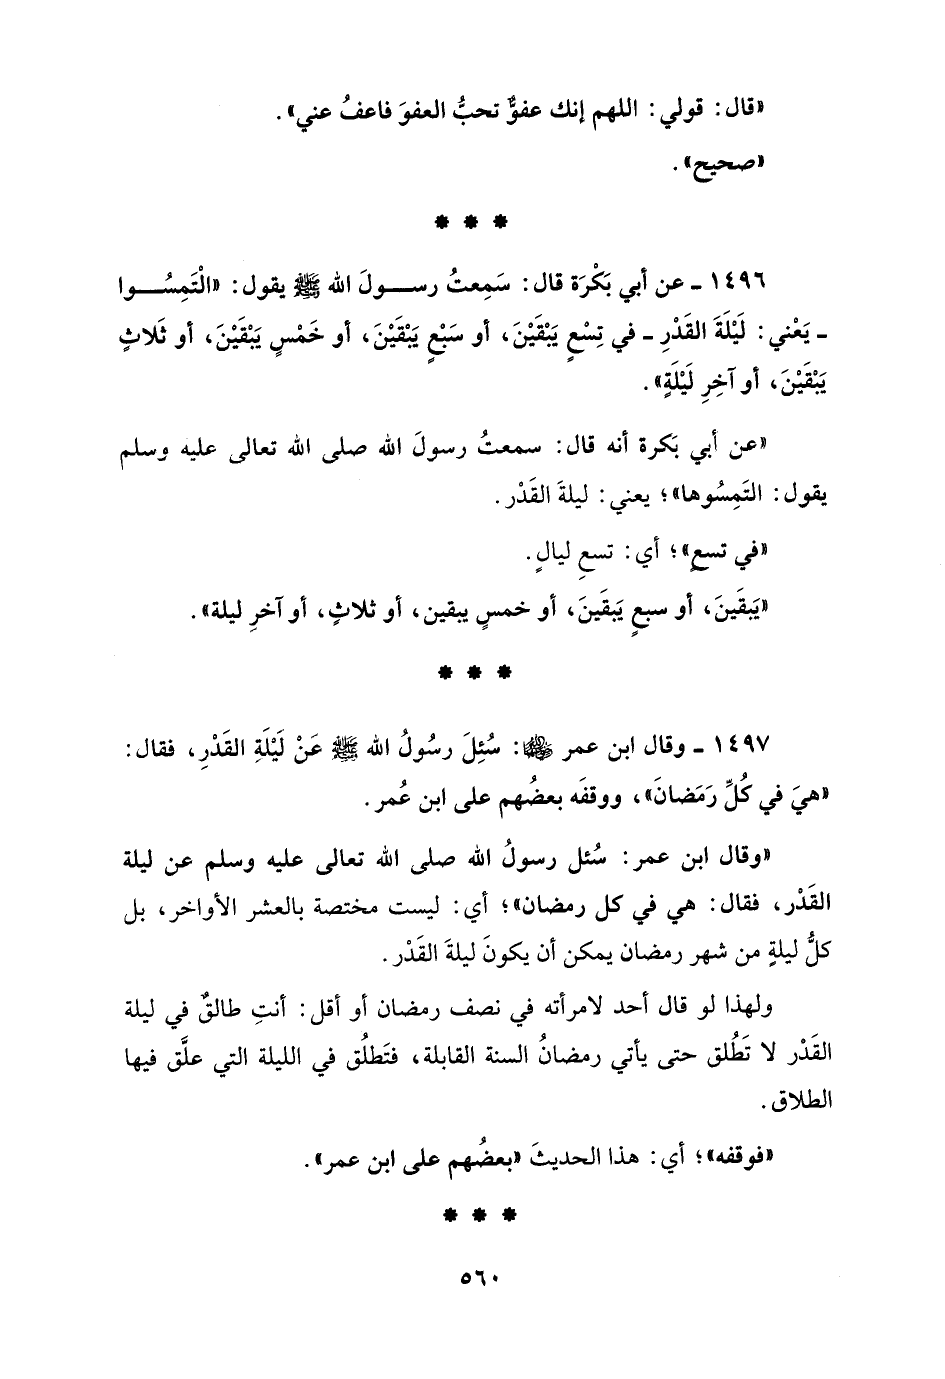 «قال: قولي: اللهم إنك عفوٌّ تحبُّ العفوَ فاعفُ عني».
«صحيح».
* * *
١٤٩٦ ـ عن أبي بَكْرَة قال: سَمِعتُ رسولَ الله ﷺ يقول: «الْتَمِسُوا
ـ يَعْني: لَيْلَةَ القَدْرِ ـ في تِسْعٍ يَبْقَيْنَ، أو سَبْعٍ يَبْقَيْنَ، أو خَمْسٍ يَبْقَيْنَ، أو ثَلاثٍ
يَبْقَيْنَ، أو آخِرِ لَيْلَةٍ».
«عن أبي بَكرة أنه قال: سمعتُ رسولَ الله صلى الله تعالى عليه وسلم
يقول: التَمِسُوها»؛ يعني: ليلةَ القَدْر.
«في تسعٍ»؛ أي: تسعِ ليالٍ.
«يَبقَينَ، أو سبعٍ يَبقَينَ، أو خمسٍ يبقين، أو ثلاثٍ، أو آخرِ ليلة».
* * *
١٤٩٧ ـ وقال ابن عمر ﵄: سُئِلَ رسُولُ الله ﷺ عَنْ لَيْلَةِ القَدْرِ، فقال:
«هيَ في كُلِّ رَمَضانَ»، ووقفَه بعضُهم على ابن عُمر.
«وقال ابن عمر: سُئل رسولُ الله صلى الله تعالى عليه وسلم عن ليلة
القَدْر، فقال: هي في كل رمضان»؛ أي: ليست مختصة بالعشر الأواخر، بل
كلُّ ليلةٍ من شهر رمضان يمكن أن يكونَ ليلةَ القَدْر.
ولهذا لو قال أحد لامرأته في نصف رمضان أو أقل: أنتِ طالقٌ في ليلة
القَدْر لا تَطُلق حتى يأتي رمضانُ السنة القابلة، فتَطلُق في الليلة التي علَّق فيها
الطلاق.
«فوقفه»؛ أي: هذا الحديثَ «بعضُهم على ابن عمر».
* * *
٥٦٠